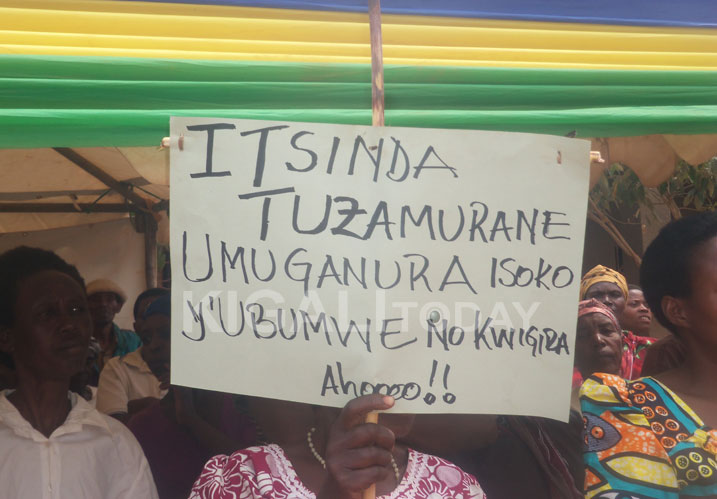 ITSINDA
TUZAMURANE
UMUGANURA ISOKO
Y'UBUMWE NO KWIGIRA
Ahoooo!!
KIGALI TODAY